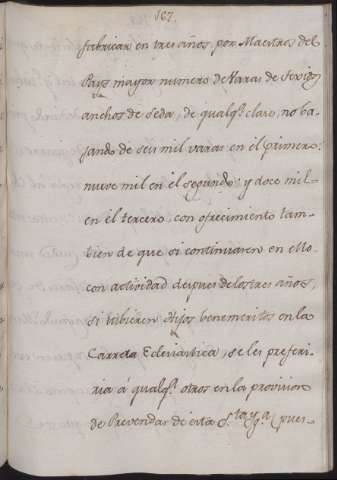 167.
fabricar en tres años, por Maestros del
Pays mayor numero de Varas de Texidos
anchos de seda, de qualqª clase, no ba-
jando de seis mil varas en el primero:
nueve mil en el segundo y doce mil
en el tercero con ofrecimiento tam-
bien de que si continuaren en ello
con actividad despues de los tres años,
si tubieren Hijos benemeritos en la
Carrera Eclesiastica, se les preferi-
ria á qualqª otros en la provision
de Prevendas de esta Sta Ygª (pues-